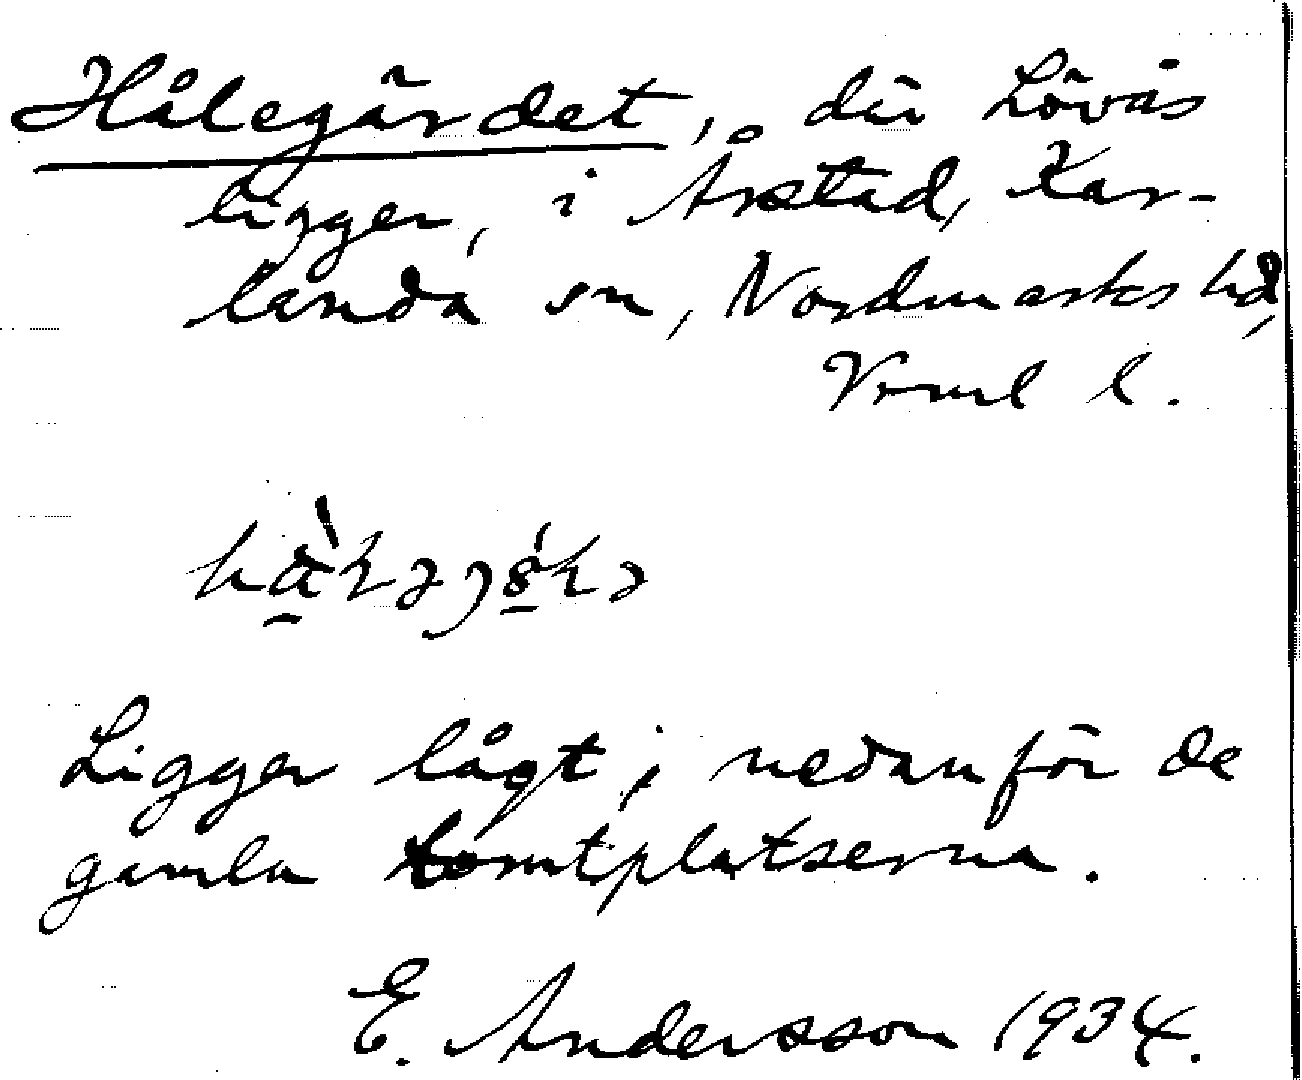 Hålegärdet, där Lövås
ligger, i Årstad, Kar-
landa sn, Nordmarks hd,
Vrml l.
Ligger lågt, nedanför de
gamla tomtplatserna.
E. Andersson 1934.